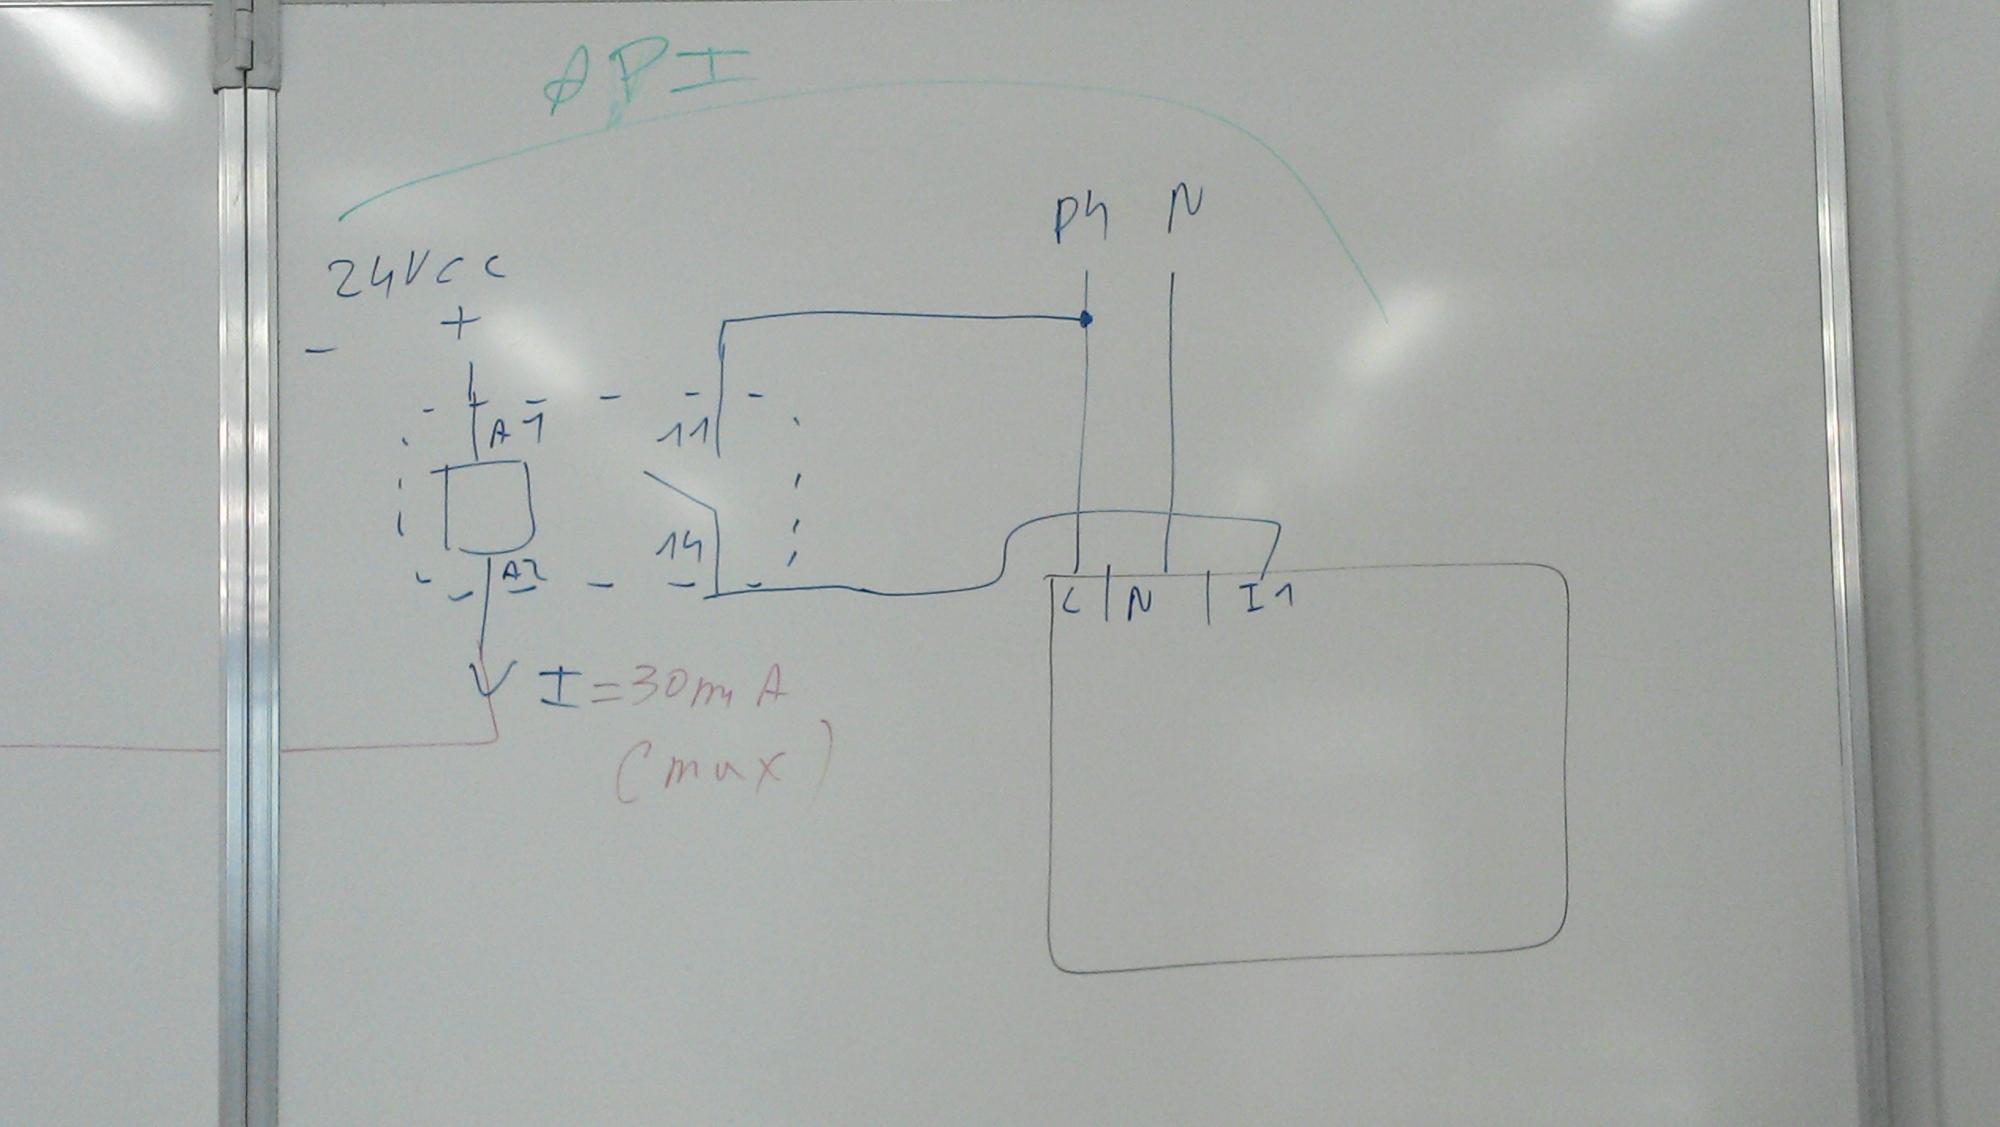 API
Ph N
24Vcc
+
-
A1
11
14
A2
L N I1
I = 30mA
(max)